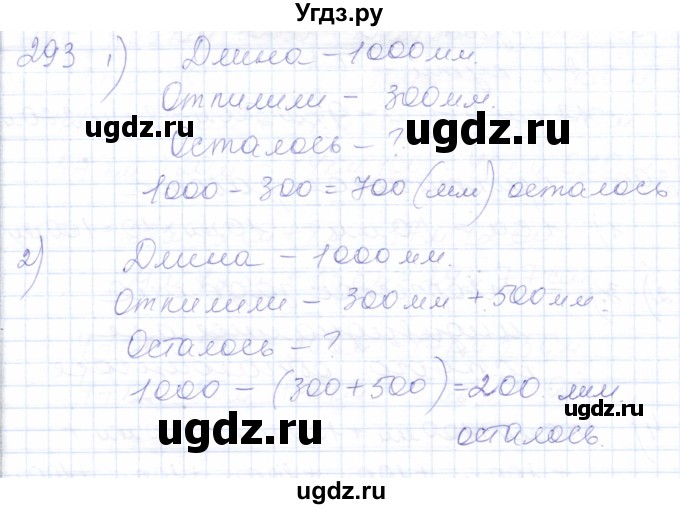 Угдз.ру
293 1) Длина – 1000 мм.
Отпилили – 300 мм.
ugdz.ru ugdz.ru
Осталось – ?
1000 – 300 = 700 (мм) осталось
2) Длина – 1000 мм.
Отпилили – 300 мм + 500 мм.
Осталось – ?
1000 – (300 + 500) = 200 мм.
ugdz.ru ugdz.ru
осталось.
ugdz.ru